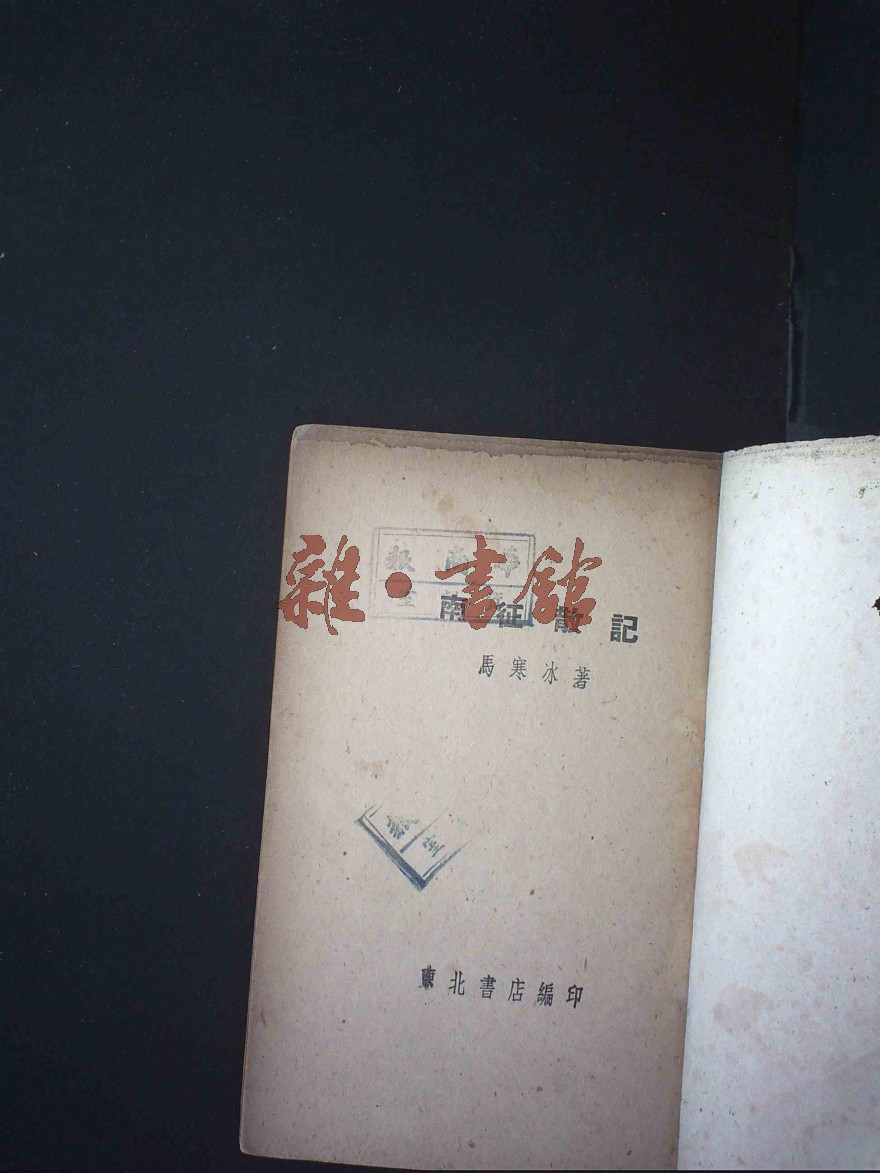 雜·書館
南征散記
馬寒冰著
東北書店編印